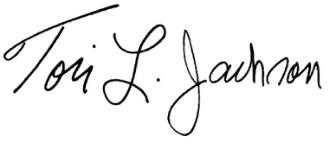 Tori L. Jackson